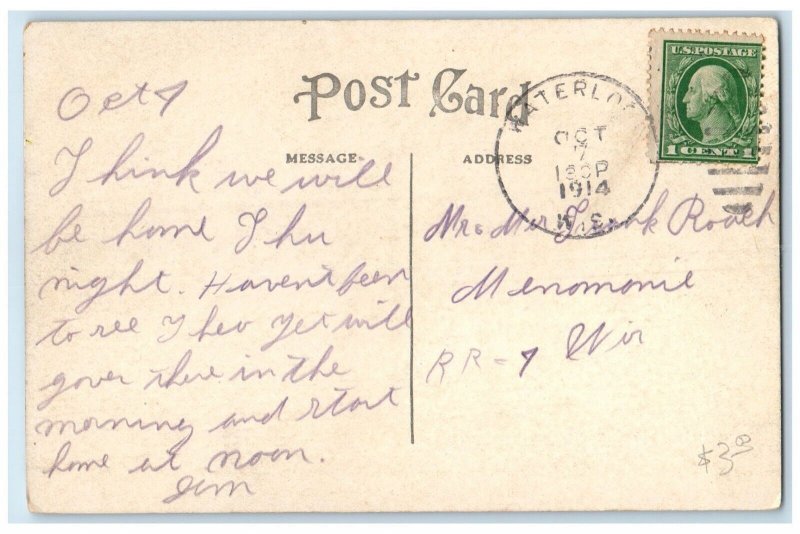 Post Card
MESSAGE
ADDRESS
U.S. POSTAGE
1 CENT 1
WATERLOO
OCT
7
1914
WIS.
Oct 7
Think we will
be home Thu
night. Havent been
to see Theo yet will
gover there in the
morning and start
home at noon.
Jim
Mr & Mrs Frank Roach
Menomonie
Wis
RR-7
$3.00